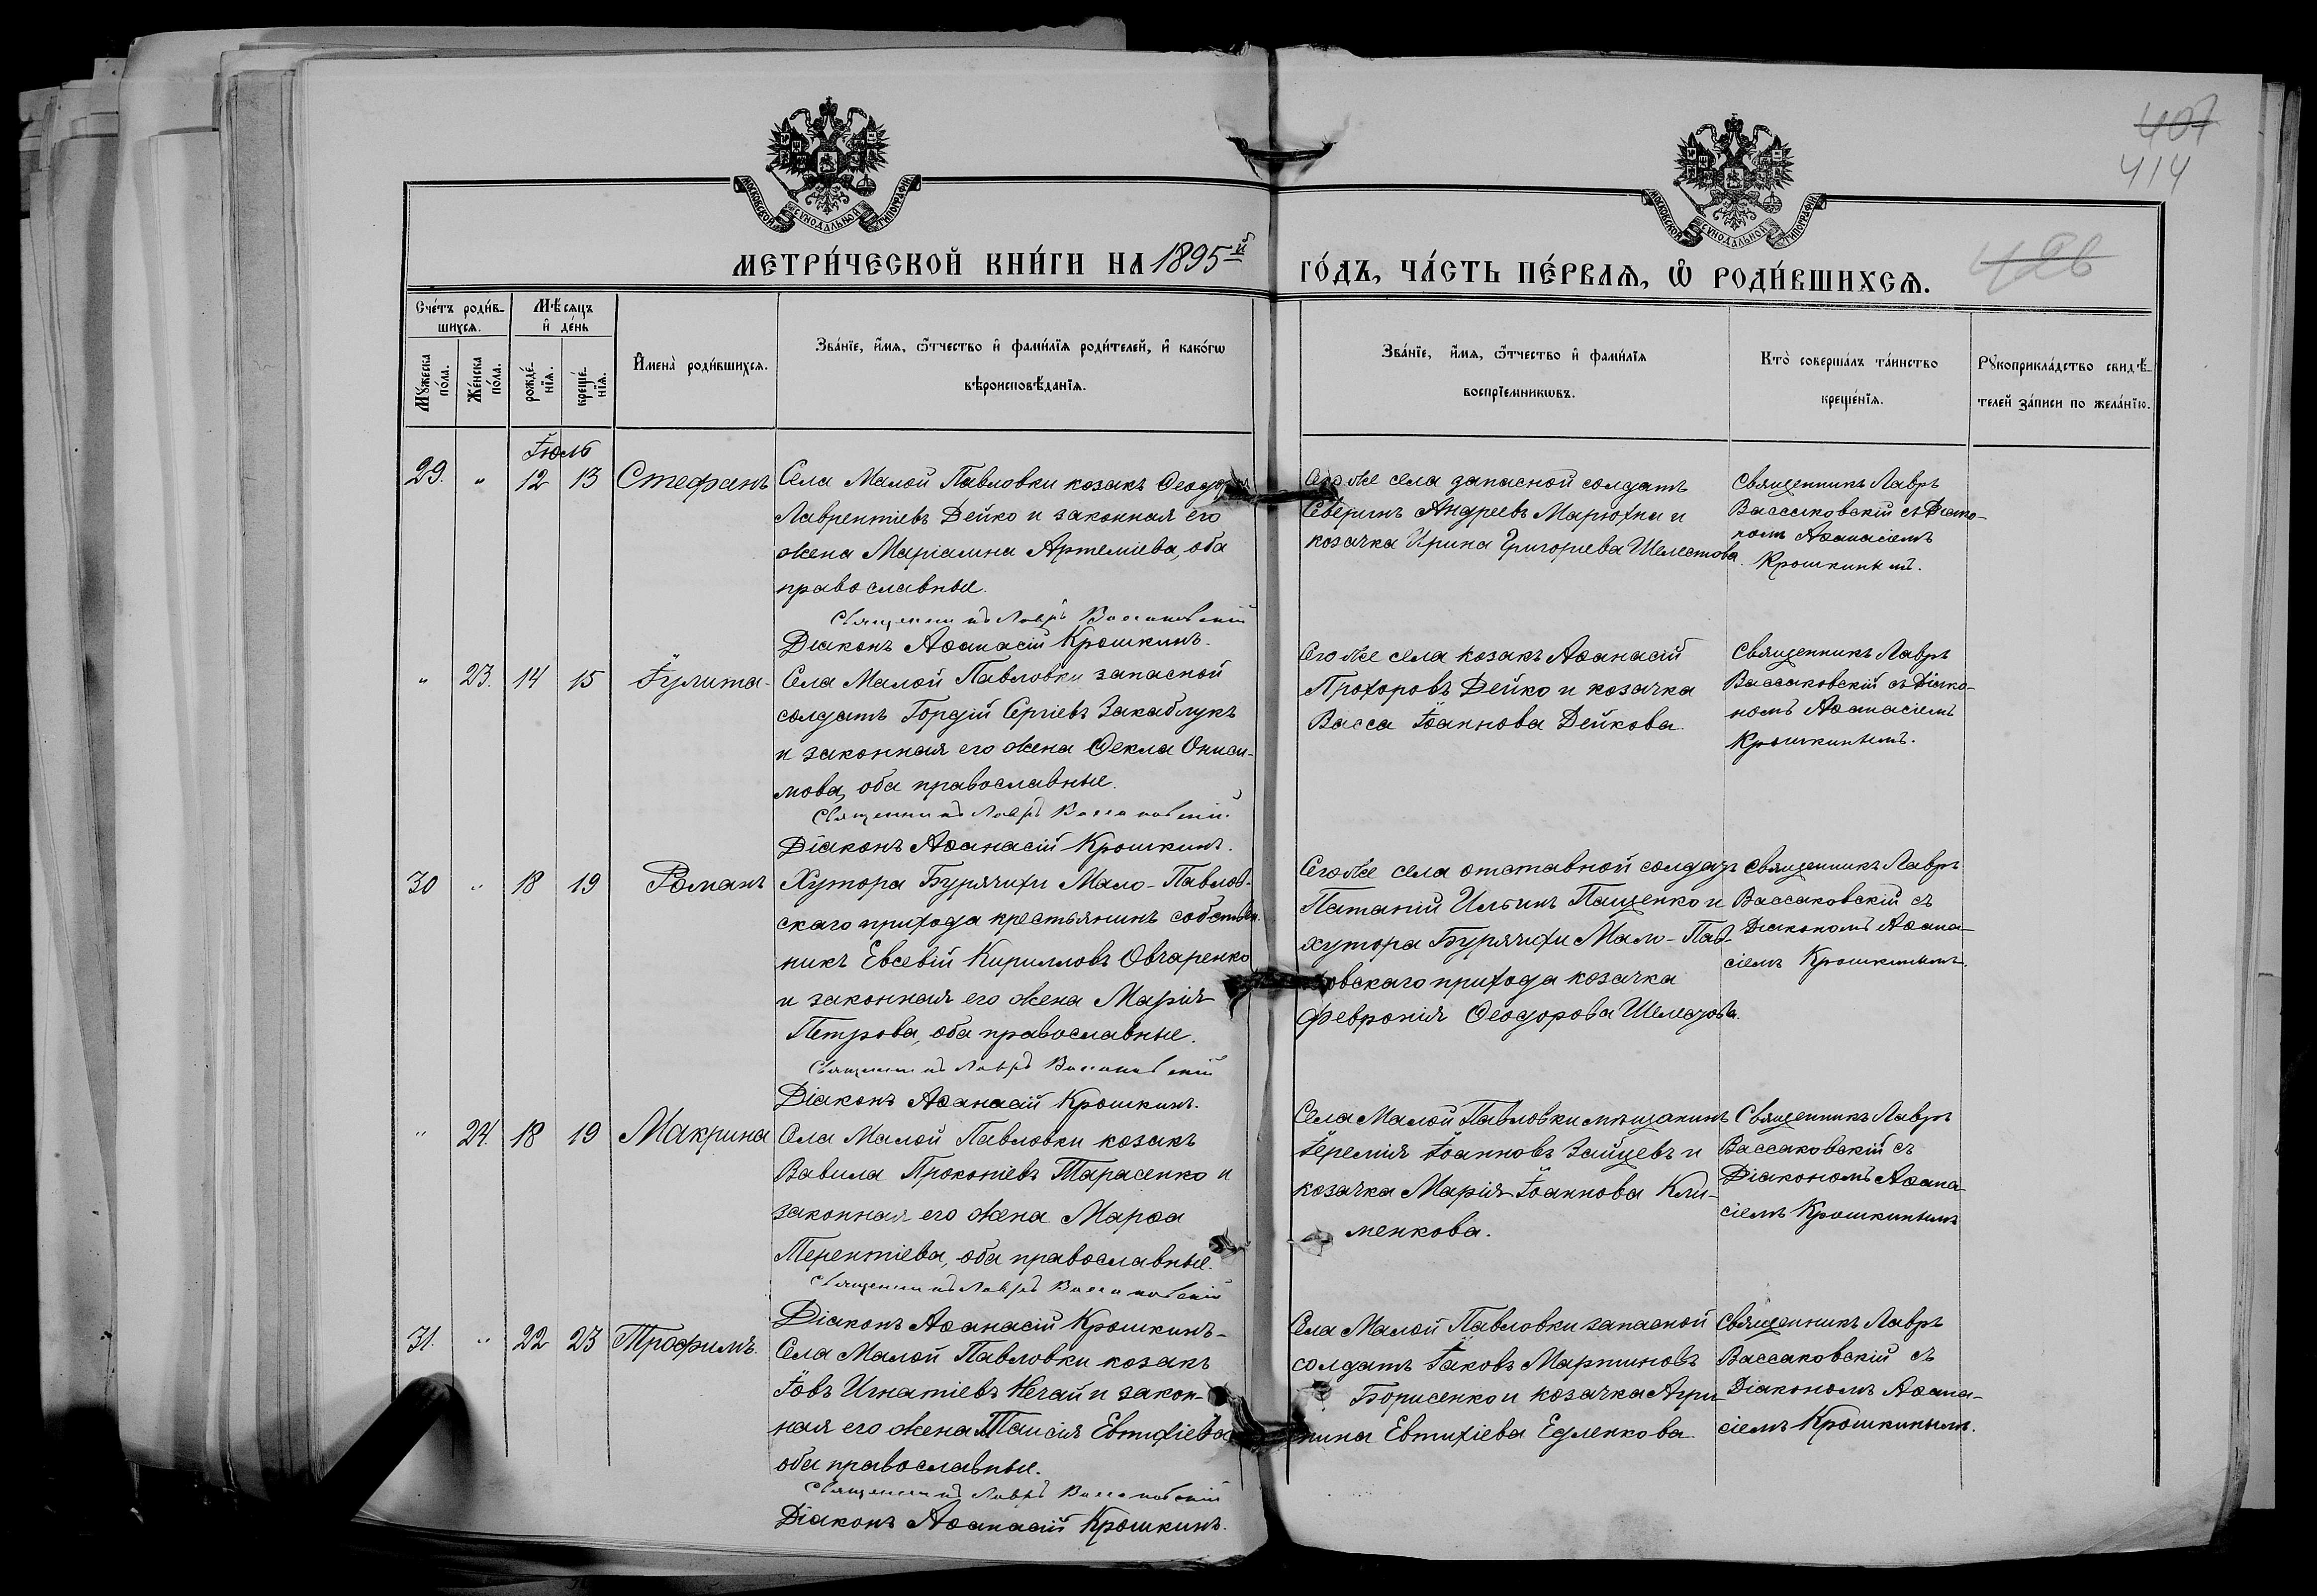 407
414
426
МОСКОВСКОЙ СУНОДАЛЬНОЙ ТИПОГРАФІИ
МОСКОВСКОЙ СУНОДАЛЬНОЙ ТИПОГРАФІИ
МЕТРИ́ЧЕСКОЙ КНИ́ГИ НА 1895-й ГО́ДЪ, ЧА́СТЬ ПЕ́РВАѦ, Ѡ҆ РОДИ́ВШИХСѦ.
Сче́тъ роди́в-
шихсѧ.
Мѣ́сѧцъ
и҆ де́нь
Мꙋ́жеска
по́ла.
Же́нска
по́ла.
рожде́-
нїѧ.
креще́-
нїѧ.
И҆мена̀ роди́вшихсѧ.
Зва́нїе, и҆́мѧ, ѻ҆́тчество и҆ фами́лїѧ роди́телей, и҆ како́гѡ
вѣроисповѣ́данїѧ.
Зва́нїе, и҆́мѧ, ѻ҆́тчество и҆ фами́лїѧ
воспрїе́мникѡвъ.
Кто̀ соверша́лъ та́инство
креще́нїѧ.
Рꙋкоприкла́дство свидѣ́-
телей за́писи по жела́нїю.
Іюль
29. " 12 13 Стефанъ
Села Малой Павловки козакъ Ѳеодоръ
Лаврентіевъ Дейко и законная его
жена Маріамна Артеміева, оба
православные.
Священникъ Лавръ Вассаковскій
Діаконъ Аѳанасій Крошкинъ.
Сего же села запасной солдатъ
Северинъ Андреевъ Марюхни и
козачка Ирина Григорьева Шелестова.
Священникъ Лавръ
Вассаковскій съ Діако-
номъ Аѳанасіемъ
Крошкинымъ.
" 23. 14 15 Іулита
Села Малой Павловки запасной
солдатъ Гордій Сергіевъ Закаблукъ
и законная его жена Ѳекла Ониси-
мова, оба православные.
Священникъ Лавръ Вассаковскій.
Діаконъ Аѳанасій Крошкинъ.
Сего же села козакъ Аѳанасій
Прохоровъ Дейко и козачка
Васса Іоаннова Дейкова.
Священникъ Лавръ
Вассаковскій съ Діако-
номъ Аѳанасіемъ
Крошкинымъ.
30 " 18 19 Романъ
Хутора Бурячихи Мало-Павлов-
скаго прихода крестьянинъ собствен-
никъ Евсевій Кирилловъ Овчаренко
и законная его жена Марія
Петрова, оба православные.
Священникъ Лавръ Вассаковскій
Діаконъ Аѳанасій Крошкинъ.
Сего же села отставной солдатъ
Патапій Ильинъ Пащенко и
хутора Бурячихи Мало-Пав-
ловскаго прихода козачка
Февронія Ѳеодорова Шелестова.
Священникъ Лавръ
Вассаковскій съ
Діакономъ Аѳана-
сіемъ Крошкинымъ.
" 24. 18 19 Макрина
Села Малой Павловки козакъ
Вавила Прокопіевъ Тарасенко и
законная его жена Марѳа
Терентіева, оба православные.
Священникъ Лавръ Вассаковскій
Діаконъ Аѳанасій Крошкинъ.
Села Малой Павловки мѣщанинъ
Іеремія Іоанновъ Зайцевъ и
козачка Марія Іоаннова Кли-
менкова.
Священникъ Лавръ
Вассаковскій съ
Діакономъ Аѳана-
сіемъ Крошкинымъ
31. " 22 23 Трофимъ.
Села Малой Павловки козакъ
Іовъ Игнатіевъ Нечай и закон-
ная его жена Таисія Евтихіева
оба православные.
Священникъ Лавръ Вассаковскій
Діаконъ Аѳанасій Крошкинъ.
Села Малой Павловки запасной
солдатъ Іаковъ Мартиновъ
Борисенко и козачка Агри-
пина Евтихіева Едленкова
Священникъ Лавръ
Вассаковскій съ
Діакономъ Аѳана-
сіемъ Крошкинымъ.